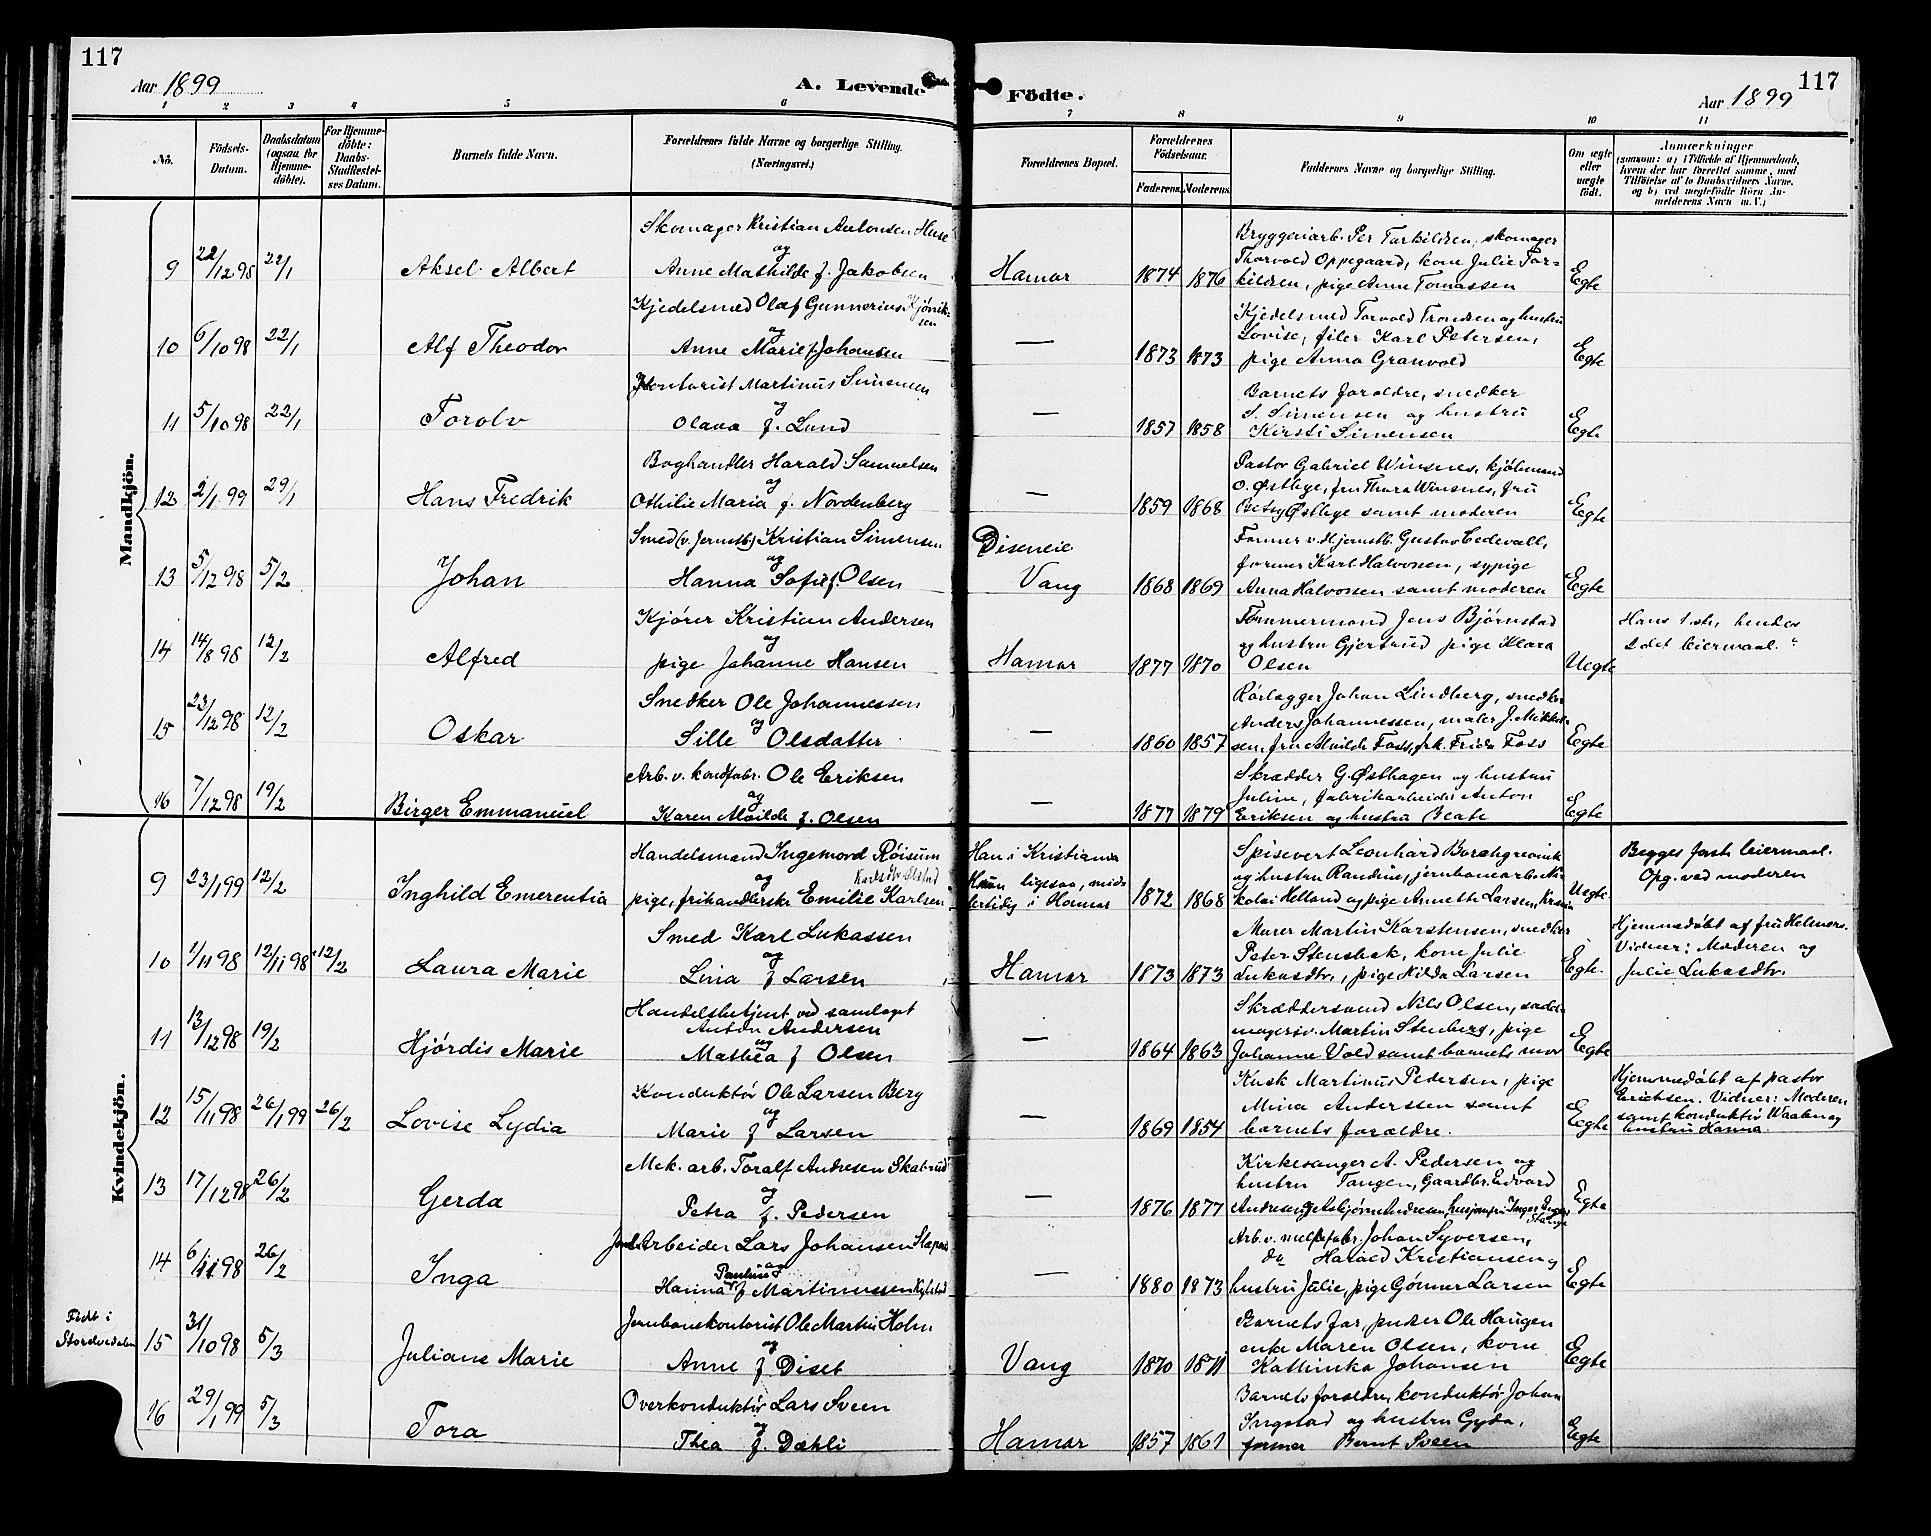 117
117
Aar 1899
A. Levende Födte.
Aar 1899
1 2 3 4 5 6 7 8 9 10 11
No.
Födsels-Datum.
Daabsdatum (ogsaa for Hjemme-döbte).
For Hjemme-döbte: Daabs-Stadfæstel-ses Datum.
Barnets fulde Navn.
Forældrenes fulde Navne og borgerlige Stilling. (Næringsvei.)
Forældrenes Bopæl.
Forældrenes Födselsaar.
Faderens. Moderens.
Faddernes Navne og borgerlige Stilling.
Om ægte eller uægte født.
Anmærkninger
(saasom: a) i Tilfælde af Hjemmedaab, hvem der har forrettet samme, med Tilföielse af to Daabsvidners Navne, og b) ved uægtefödte Börn An-melderens Navn m. V.)
Mandkjön.
9 22/12 98 22/1 Aksel Albert
Skomager Kristian Antonsen Huse
og
Anne Mathilde f. Jakobsen
Hamar 1874 1876
Bryggeriarb. Per Torkildsen, skomager
Thorvald Oppegaard, kone Julie Tor-
kildsen, pige Anne Tomassen
Egte
10 6/10 98 22/1 Alf Theodor
Kjedelsmed Olaf Gunnerius
og
Anne Marie f. Johansen
— 1873 1873
Kjedelsmed Torvald Trondsen og hustru
Lovise, filer Karl Petersen,
pige Anna Granvold
Egte
11 5/10 98 22/1 Torolv
Kontorist Martinus Simensen
og
Olava f. Lund
— 1857 1858
Barnets forældre, snedker
S. Simensen og hustru
Kirsti Simensen
Egte
12 2/1 99 29/1 Hans Fredrik
Boghandler Harald Samuelsen
og
Othilie Maria f. Nordenberg
— 1859 1868
Pastor Gabriel Winsnes, kjøbmand
O. Østbye, fru Thora Winsnes, fru
Betsy Østbye samt moderen
Egte
13 5/12 98 5/2 Johan
Smed (v. Jernstb.) Kristian Simensen
og
Hanna Sofie f. Olsen
Diseneie
Vang 1868 1869
Former v. Hjernstb. Gustav Cedevall,
former Karl Halvorsen, sypige
Anna Halvorsen samt moderen
Egte
14 14/8 98 12/2 Alfred
Kjører Kristian Andersen
og
pige Johanne Hansen
Hamar 1877 1870
Tømmermand Jens Bjørnstad
og hustru Gjertrud pige Klara
Olsen
Uegte
Hans 1ste, hendes
2det leiermaal.
15 23/12 98 12/2 Oskar
Snedker Ole Johannessen
og
Sille Olsdatter
— 1860 1857
Rørlægger Johan Lindberg, snedker
Anders Johannessen, maler J. Mikkel-
sen, fru Alvilde Foss, frk. Frida Foss
Egte
16 7/12 98 19/2 Birger Emmanuel
Arb. v. kondfabr. Ole Eriksen
og
Karen Alvilde f. Olsen
— 1877 1879
Skrædder G. Østhagen og hustru
Juline, fabrikarbeider Anton
Eriksen og hustru Beate
Egte
Kvindekjön.
9 23/1 99 12/2 Inghild Emerentia
Handelsmand Ingemord Røisum
og
pige, frihandlerske Emilie Karlsen
Han i Kristiania
Hun ligesaa, mid-
lertidig i Hamar 1872 1868
Spisevert Leonhard Borchgrevink
og hustru Randine, jernbanearb. Ni-
kolai Helland og pige Annette Larsen, Krania
Uegte
Begges første leiermaal.
Opg. ved moderen
10 1/11 98 12/11 98 12/2 Laura Marie
Smed Karl Lukassen
og
Lina f Larsen
Hamar 1873 1873
Murer Martin Karstensen, snedker
Peter Stensbak, kone Julie
Lukasdtr., pige Hilda Larsen
Egte.
Hjemmedøbt af fru Helmers.
Vidner: Moderen og
Julie Lukasdtr.
11 13/12 98 19/2 Hjørdis Marie
Handelsbetjent ved samlaget
Anton Andersen
og
Mathea f Olsen
— 1864 1863
Skræddersvend Nils Olsen, sadel-
magersv. Martin Stenberg, pige
Johanne Vold samt barnets mor
Egte
12 15/11 98 26/1 99 26/2 Lovise Lydia
Konduktør Ole Larsen Berg
og
Marie f Larsen
— 1869 1854
Kusk Martinus Pedersen, pige
Mina Anderssen samt
barnets forældre.
Egte
Hjemmedøbt af pastor
Erichsen. Vidner: Moderen
samt konduktør Waalen og
hustru Hanna.
13 17/12 98 26/2 Gerda
Mek. arb. Toralf Andresen Skatrud
og
Petra f. Pedersen
— 1876 1877
Kirkesanger A. Pedersen og
hustru Tangen, Gaardbr. Edvard
Andresen og Asbjørn Andresen, husjomfru Inger
Stange
Egte
14 6/11 98 26/2 Inga
Arbeider Lars Johansen
og
Hanna Pauline f Martinussen
— 1880 1873
Arb. v. melkefabr. Johan Syversen,
do Harald Kristiansen,
hustru Julie, pige Gønner Larsen
Egte
Født i
Storelvedalen
15 31/10 98 5/3 Juliane Marie
Jernbanekontorist Ole Martin Holm
og
Anne f Diset
Vang 1870 1871
Barnets far, pudser Ole Haugen
enke Maren Olsen, kone
Kathinka Johansen
Egte
16 29/1 99 5/3 Tora
Overkonduktør Lars Sveen
og
Thea f. Dæhli
Hamar 1857 1861
Barnets forældre, konduktør Johan
Ingstad og hustru Gyda,
former Bernt Sveen
Egte